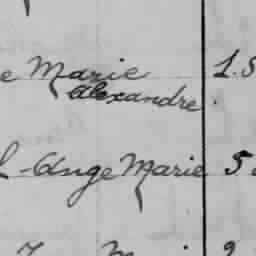 e Marie 1.5
Alexandre
l-Ange Marie 5